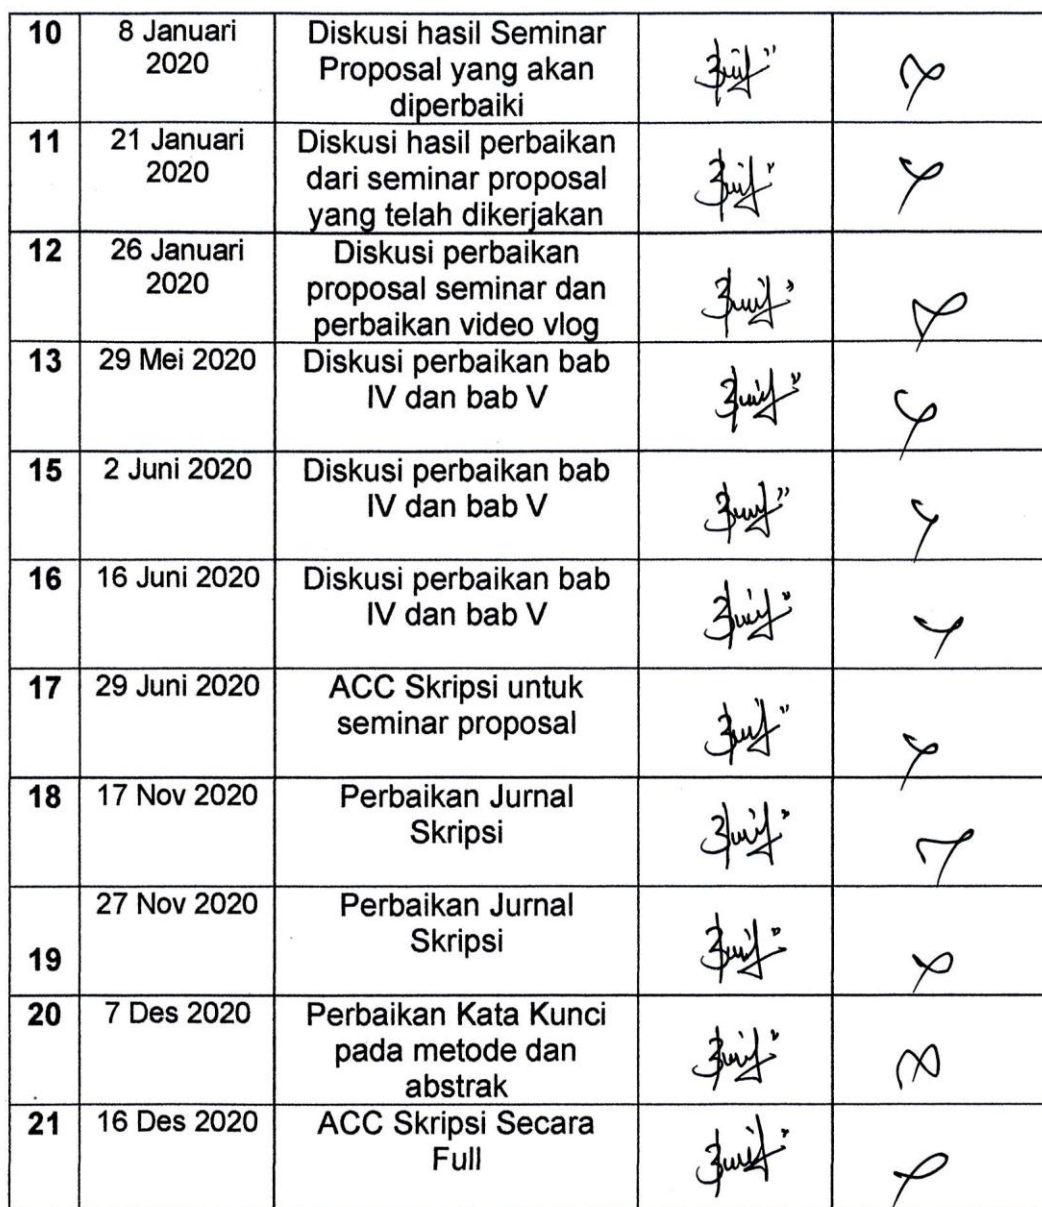 10
8 Januari
2020
Diskusi hasil Seminar
Proposal yang akan
diperbaiki
11
21 Januari
2020
Diskusi hasil perbaikan
dari seminar proposal
yang telah dikerjakan
12
26 Januari
2020
Diskusi perbaikan
proposal seminar dan
perbaikan video vlog
13
29 Mei 2020
Diskusi perbaikan bab
IV dan bab V
15
2 Juni 2020
Diskusi perbaikan bab
IV dan bab V
16
16 Juni 2020
Diskusi perbaikan bab
IV dan bab V
17
29 Juni 2020
ACC Skripsi untuk
seminar proposal
18
17 Nov 2020
Perbaikan Jurnal
Skripsi
19
27 Nov 2020
Perbaikan Jurnal
Skripsi
20
7 Des 2020
Perbaikan Kata Kunci
pada metode dan
abstrak
21
16 Des 2020
ACC Skripsi Secara
Full